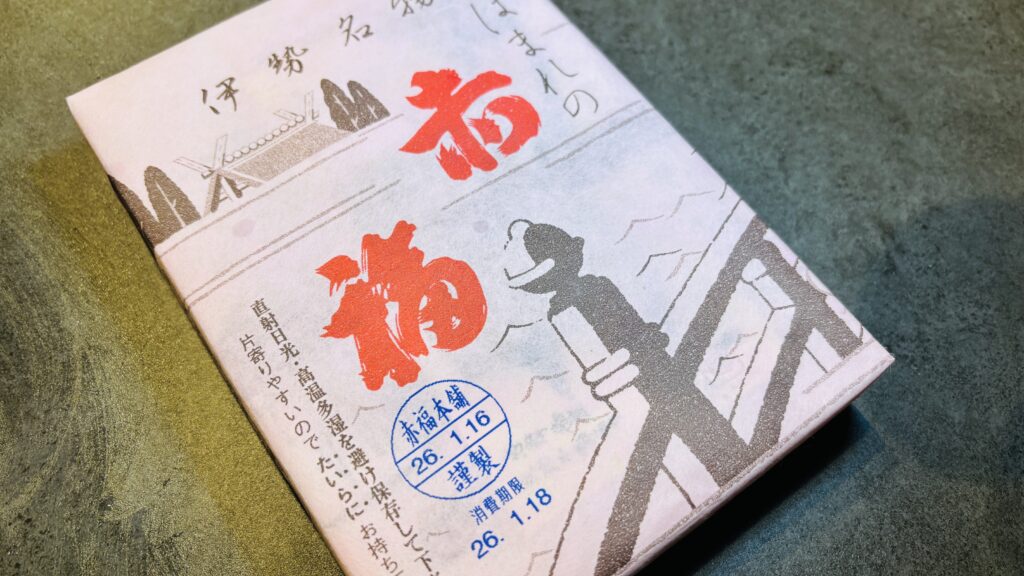 ほまれの
赤
福
伊勢名物
直射日光・高温多湿を避け保存して下
片寄りやすいので たいらに お持ち
赤福本舗
26. 1.16
謹製
消費期限
26. 1.18